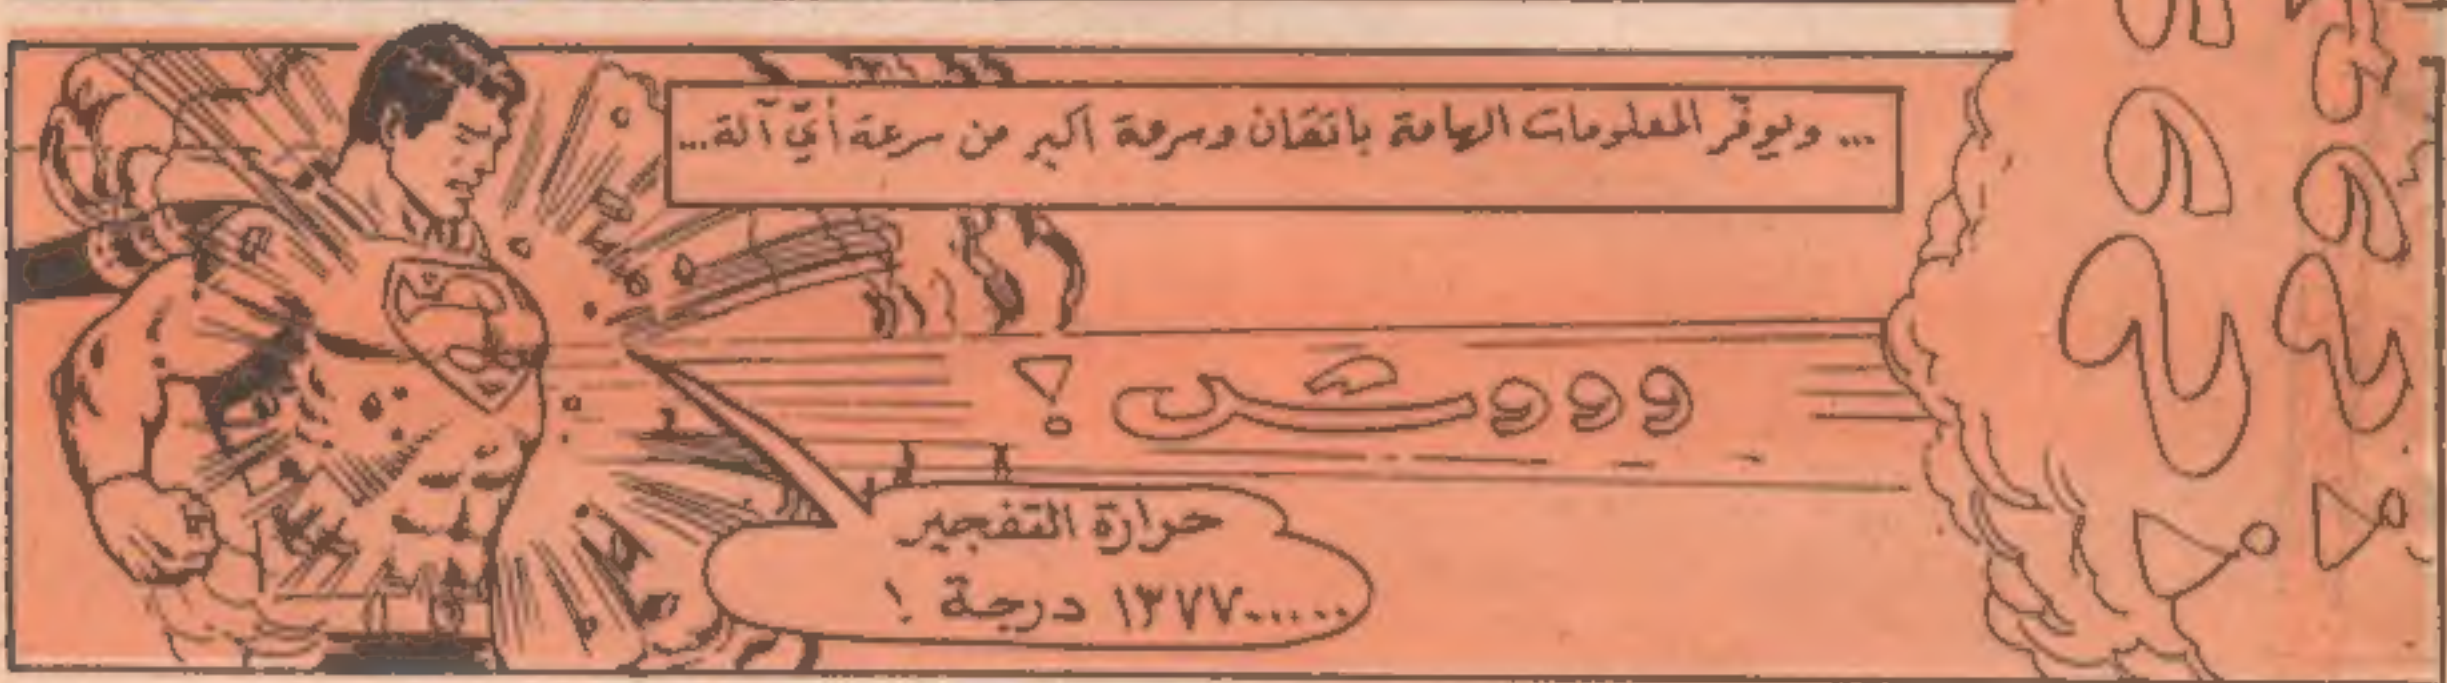 ... ويوفّر المعلومات الهامة باتقان وسرعة اكبر من سرعة أيّ آلة...
وووش!
حرارة التفجير
١٣٧٧...... درجة !